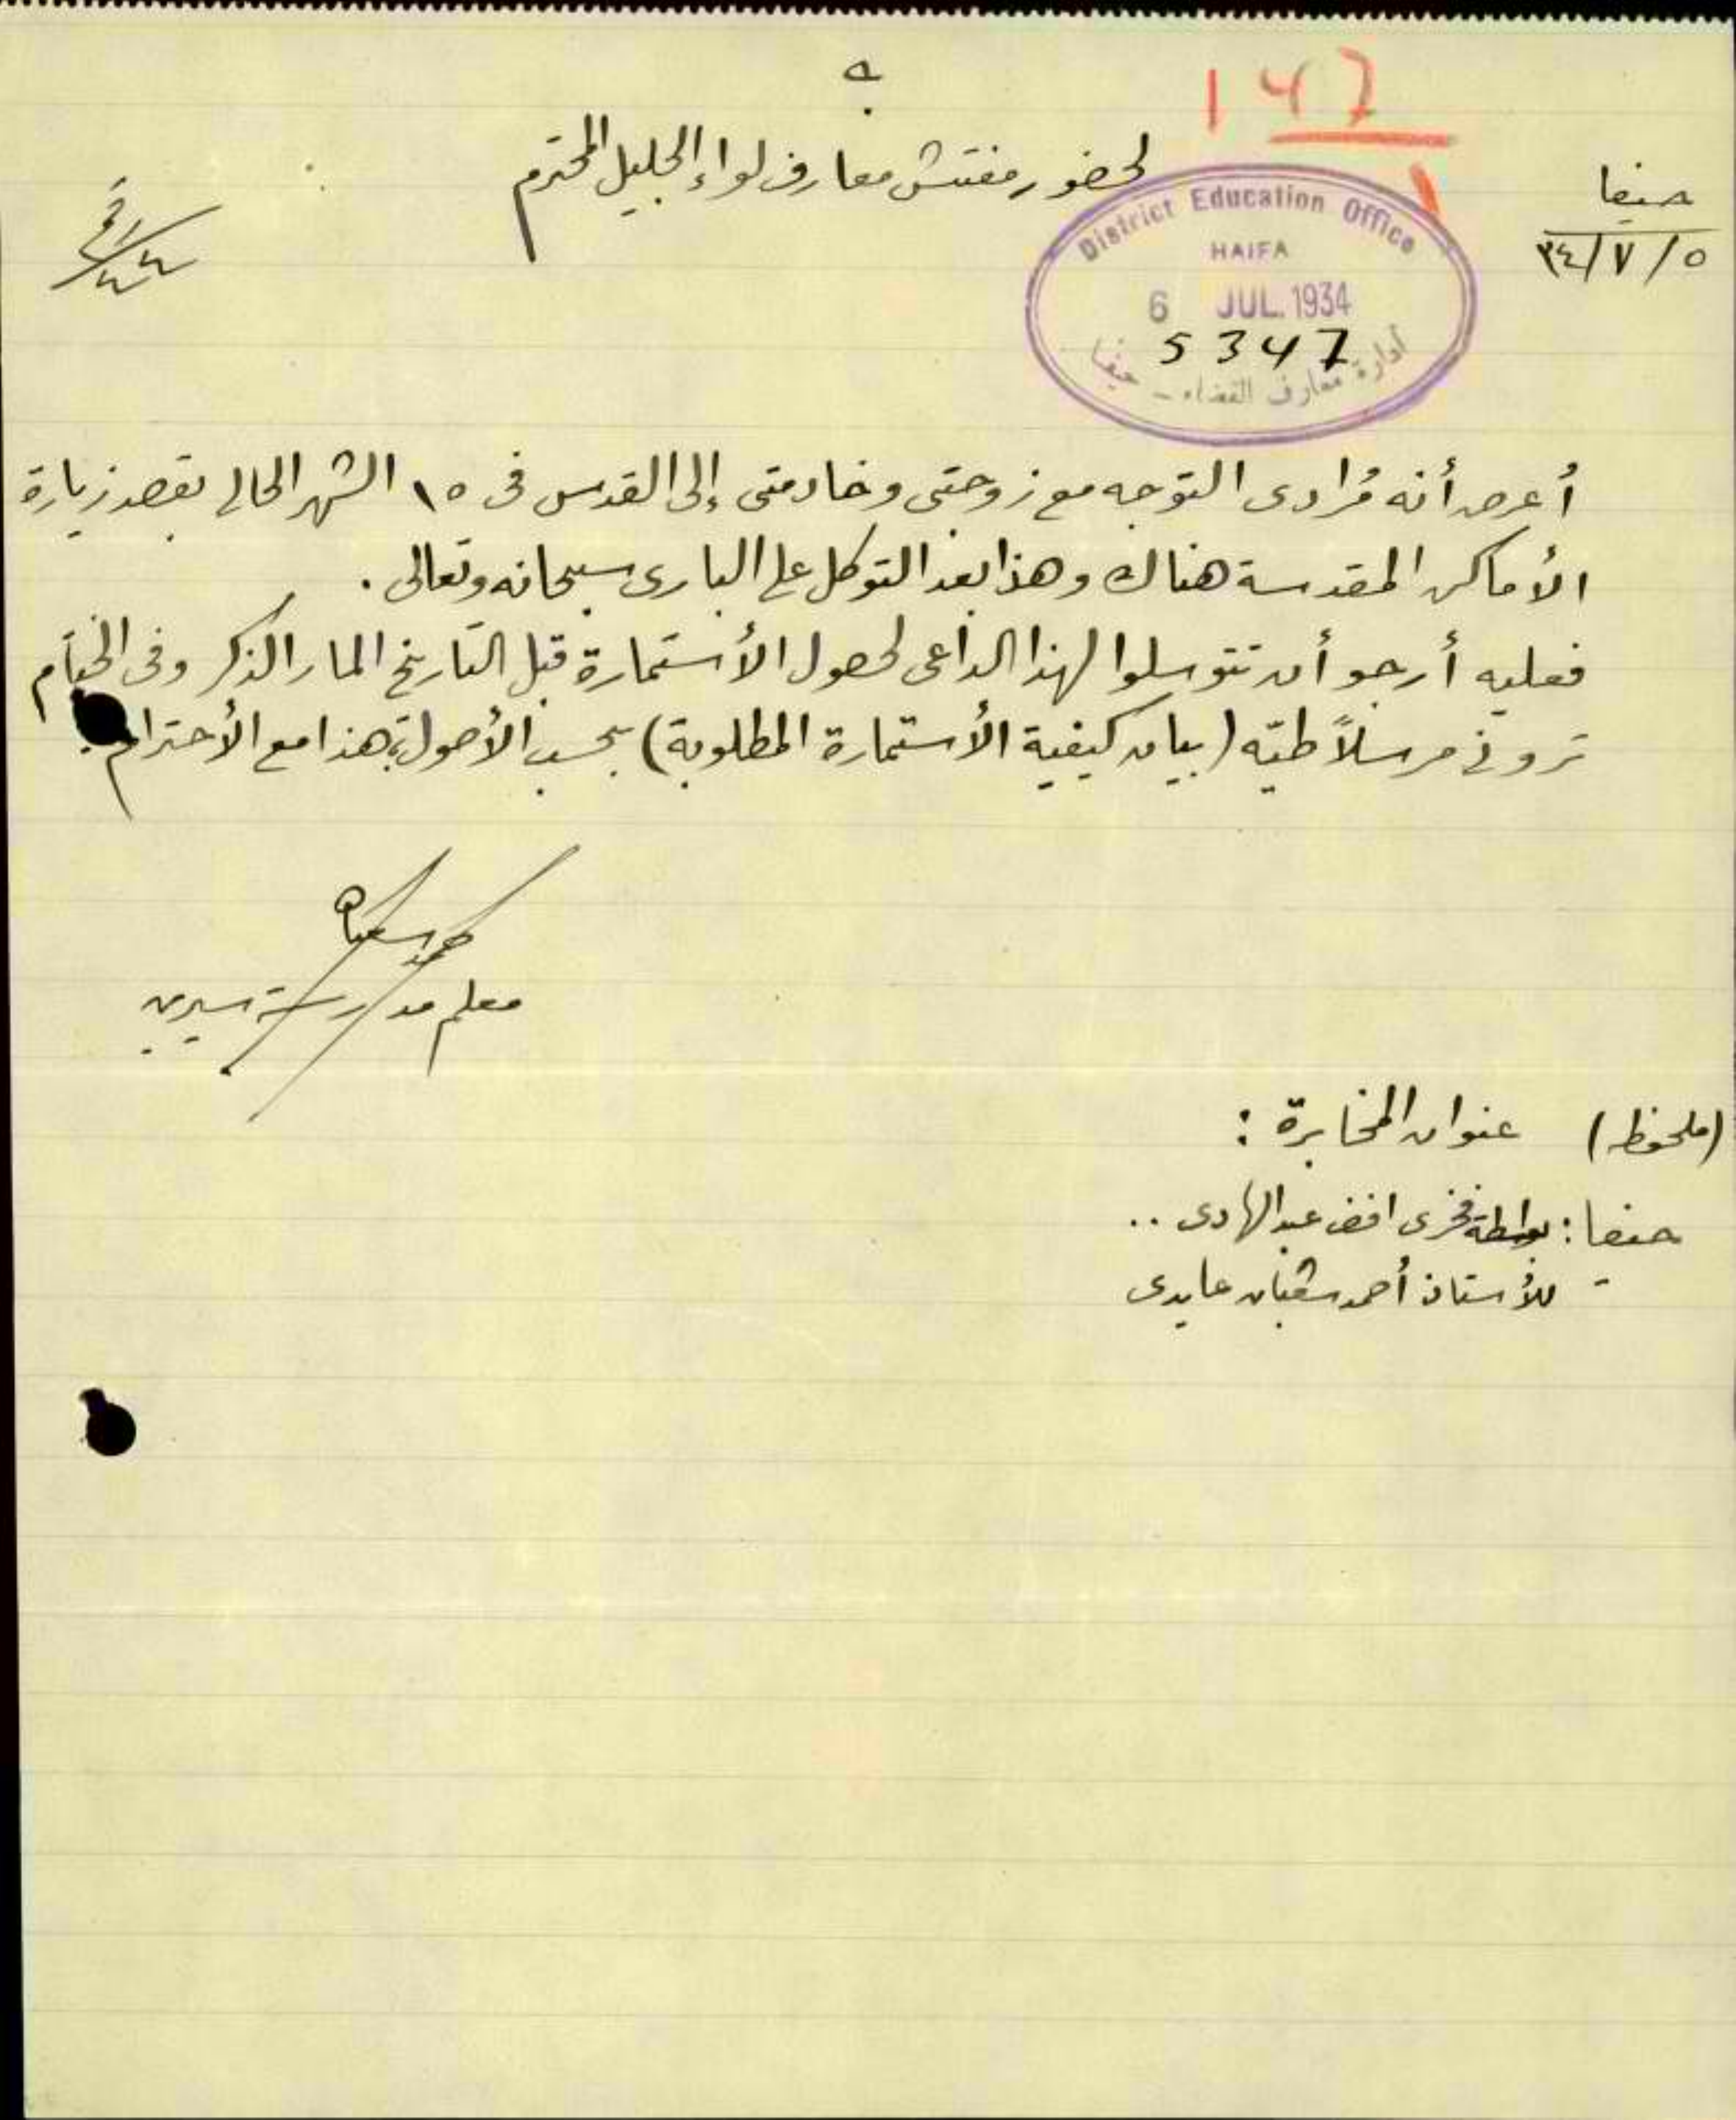 147
لحضور مفتش معارف لواء الجليل المحترم
حيفا
٥/٧/٣٤
District Education Office
HAIFA
6 JUL. 1934
5347
ادارة معارف القضاء - حيفا
أعرض أنه مُرادى التوجه مع زوجتى وخادمتى إلى القدس فى ١٥ الشهر الحالى بقصد زيارة
الأماكن المقدسة هناك وهذا بعد التوكل على البارى سبحانه وتعالى.
فعليه أرجو أن تتوسلوا لهذا الداعى لحصول الأستمارة قبل التاريخ المار الذكر وفى الختام
ترونى مرسلاً طيّه (بيان كيفية الأستمارة المطلوبة) بحسب الأصول، هذا مع الأحترام.
معلم مدرسة سيرين
(ملحوظه) عنوان المخابرة :
حيفا : بواسطة فخرى افندى عبد الهادى ..
للأستاذ أحمد شعبان عابدى